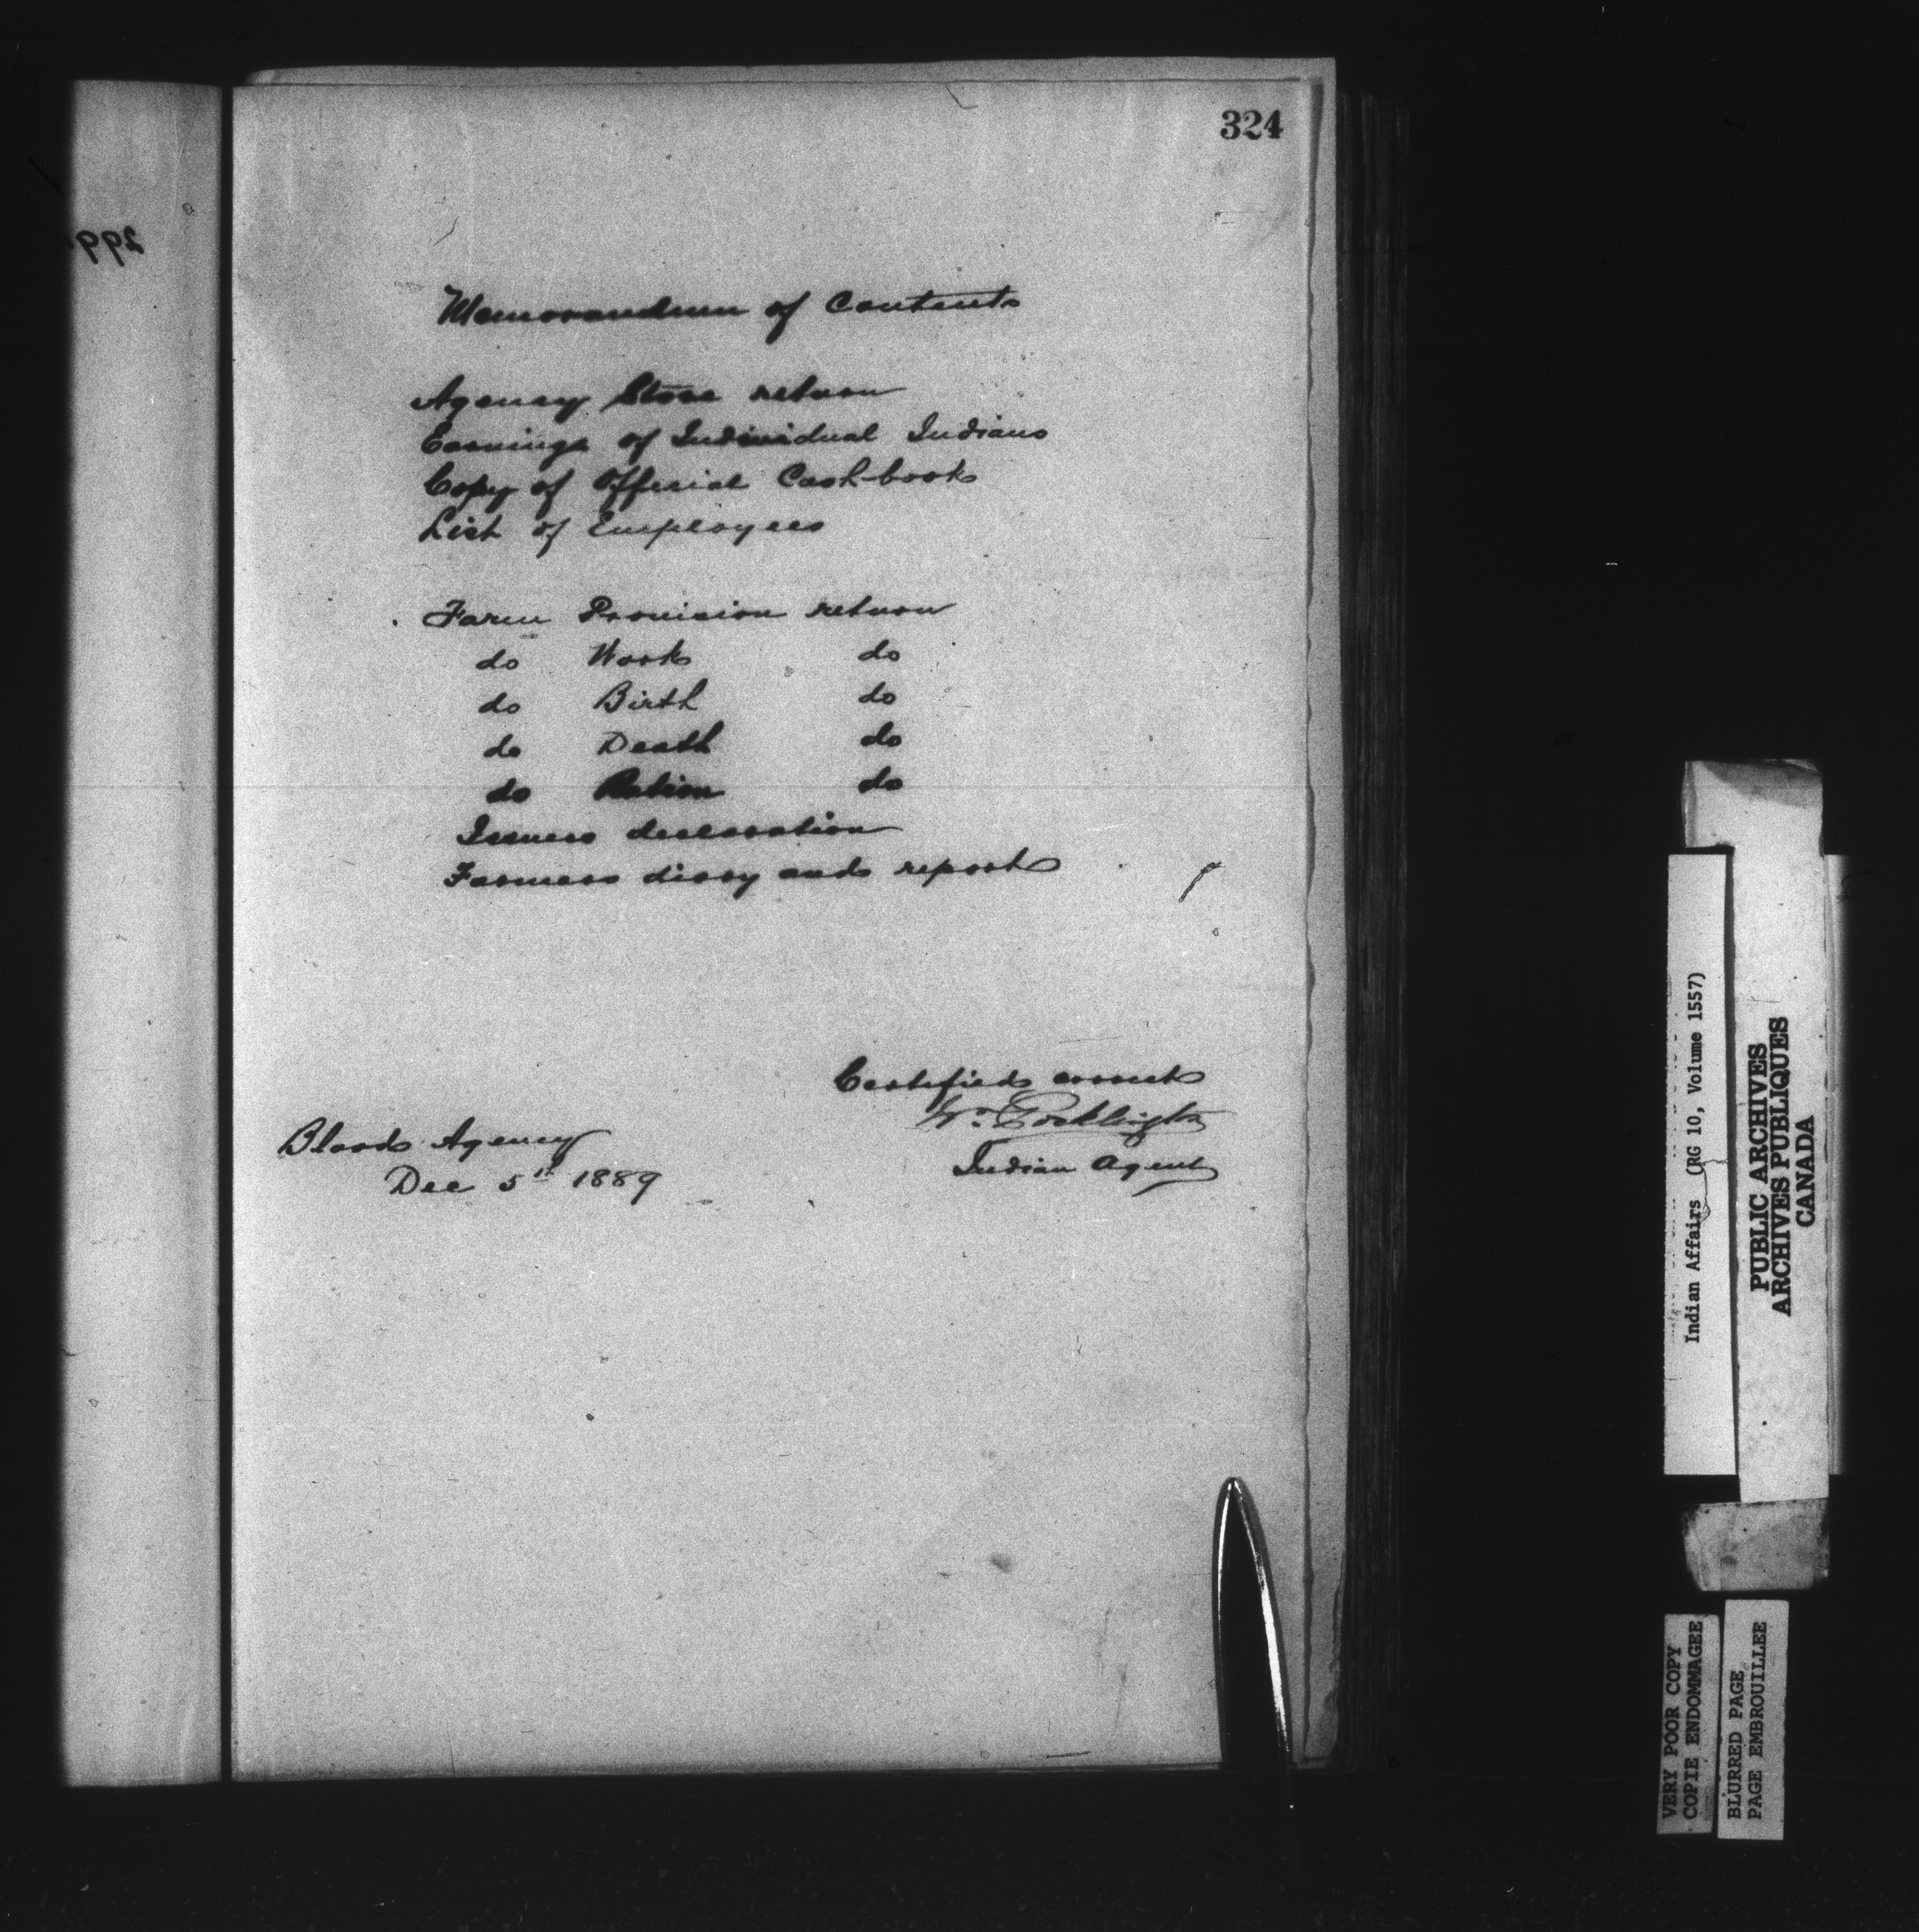 324
299
Memorandum of Contents
Agency Store return
Earnings of Individual Indians
Copy of Official Cash-book
List of Employees
Farm Provision return
do Work do
do Birth do
do Death do
do Ration do
Issuers declaration
Farmers diary and report
Certified correct
Wm. Pocklington
Indian Agent
Blood Agency
Dec 5th 1889
Indian Affairs (RG 10, Volume 1557)
PUBLIC ARCHIVES
ARCHIVES PUBLIQUES
CANADA
VERY POOR COPY
COPIE ENDOMMAGEE
BLURRED PAGE
PAGE EMBROUILLEE